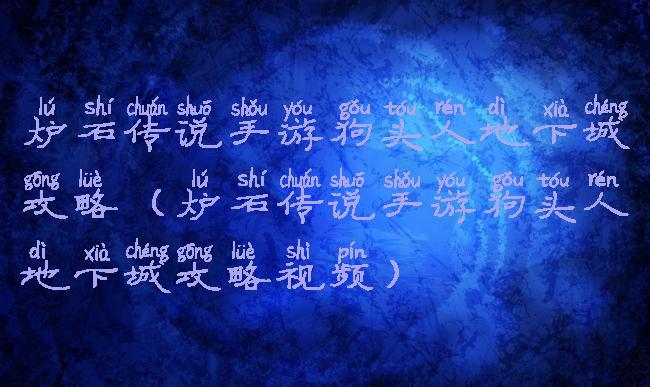 lú shí chuán shuō shǒu yóu gǒu tóu rén dì xià chéng
炉石传说手游狗头人地下城
gōng lüè lú shí chuán shuō shǒu yóu gǒu tóu rén
攻略（炉石传说手游狗头人
dì xià chéng gōng lüè shì pín
地下城攻略视频）